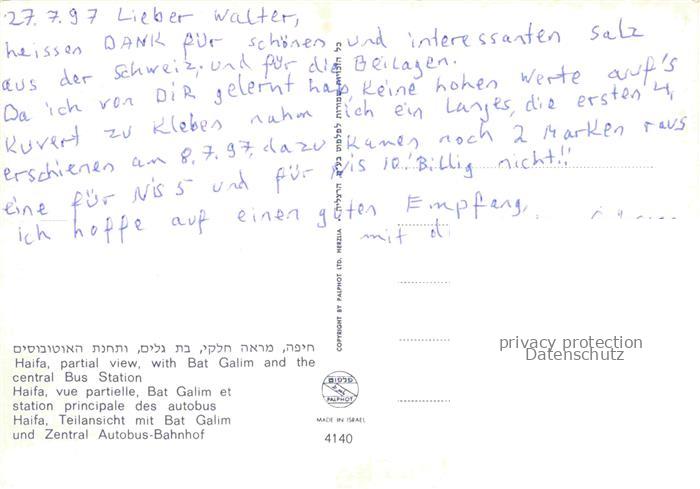 27.7.97 Lieber Walter,
heissen DANK für schönen und interessanten Salz
aus der Schweiz, und für die Beilagen.
Da ich von DIR gelernt hab, keine hohen Werte auf's
Kuvert zu kleben nahm ich ein Langes, die ersten 4,
erschienen am 8.7.97, dazu kamen noch 2 Marken raus
eine für NIS 5 und für NIS 10. Billig nicht!!
ich hoffe auf einen guten Empfang,
mit di
כל הזכויות שמורות לפלפוט בע"מ הרצליה
COPYRIGHT BY PALPHOT LTD. HERZLIA
חיפה, מראה חלקי, בת גלים, ותחנת האוטובוסים
Haifa, partial view, with Bat Galim and the
central Bus Station
Haifa, vue partielle, Bat Galim et
station principale des autobus
Haifa, Teilansicht mit Bat Galim
und Zentral Autobus-Bahnhof
פלפוט
PALPHOT
MADE IN ISRAEL
4140
privacy protection
Datenschutz